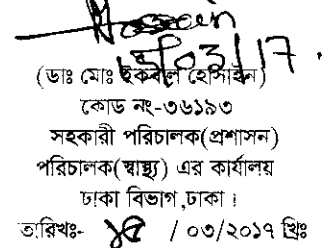 15/03/17.
(ডাঃ মোঃ ইকবাল হোসাইন)
কোড নং-৩৬১৯৩
সহকারী পরিচালক(প্রশাসন)
পরিচালক(স্বাস্থ্য) এর কার্যালয়
ঢাকা বিভাগ,ঢাকা।
তারিখঃ- ১৫ / ০৩/২০১৭ খ্রিঃ